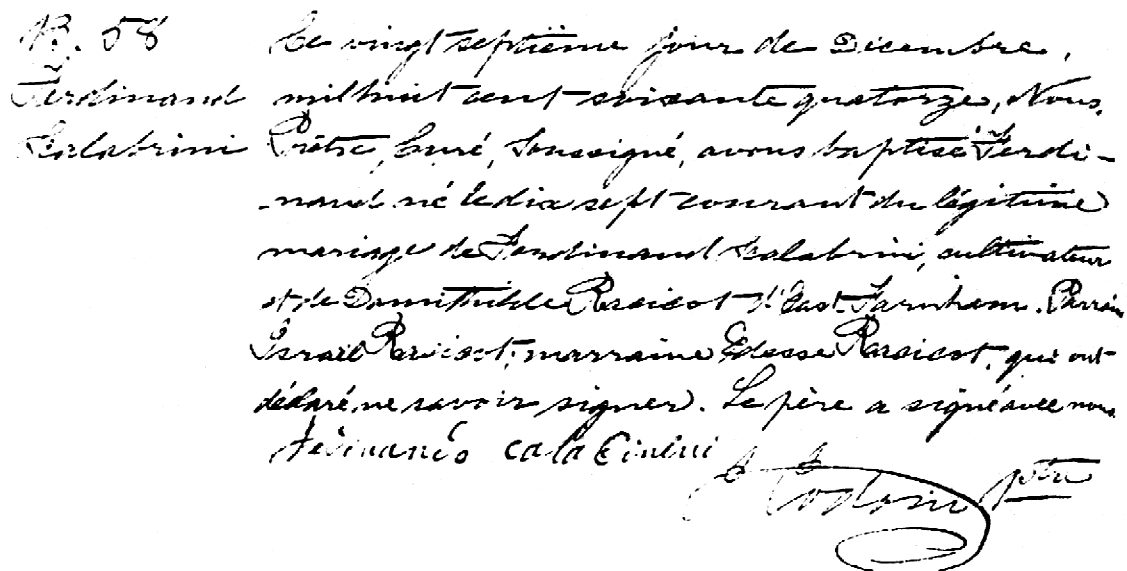 B. 58
Ferdinand
Scalabrini
Le vingt septième jour de Décembre,
mil huit cent soixante quatorze, Nous,
Prêtre, Curé, Soussigné, avons baptisé Ferdi-
-nand né le dix sept courant du légitime
mariage de Ferdinand Scalabrini, cultivateur
et de Domithilde Racicot d'East-Farnham. Parrain
Israël Racicot, marraine Edesse Racicot, qui ont
déclaré ne savoir signer. Le père a signé avec nous
ptre